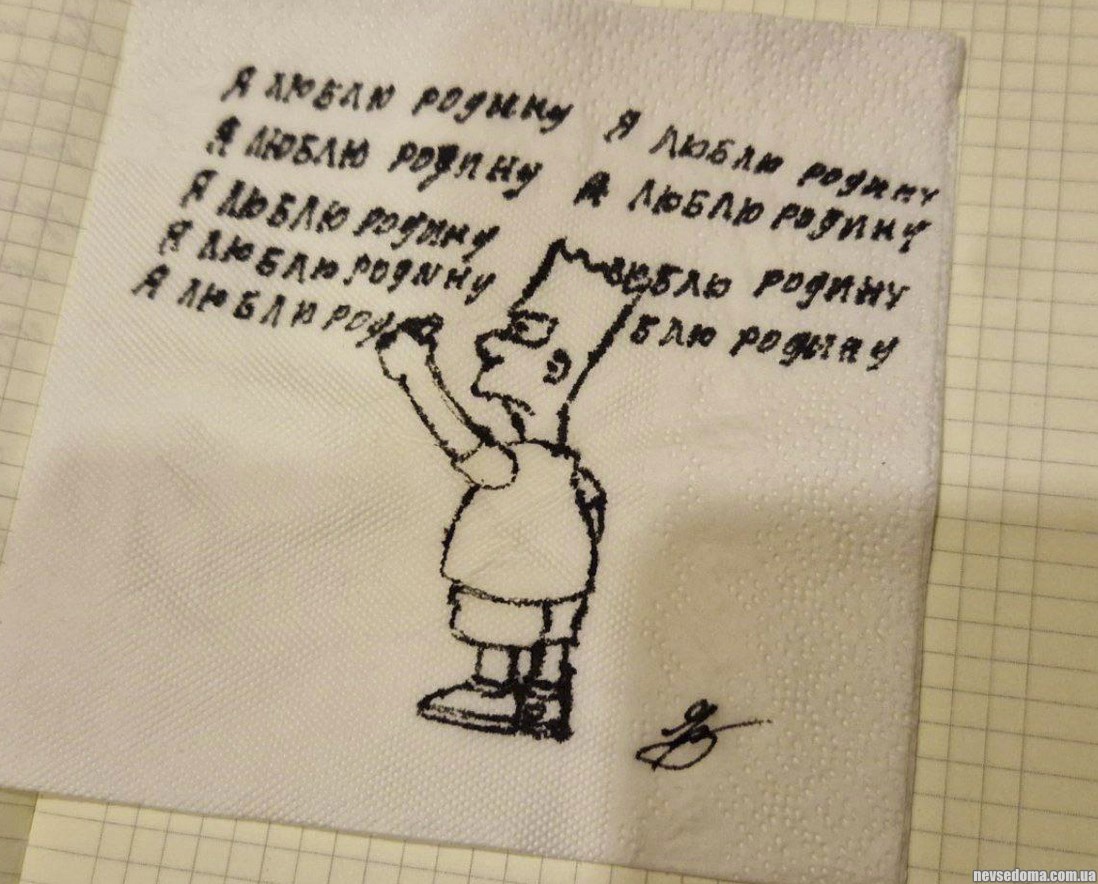 Я люблю родину Я люблю родину
Я люблю родину Я люблю родину
Я люблю родину юблю родину
Я люблю родину блю родину
Я люблю род
nevsedoma.com.ua